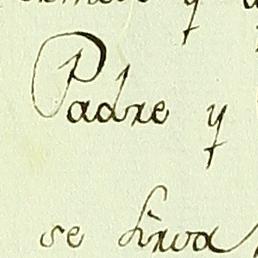 Padre y
se sirva